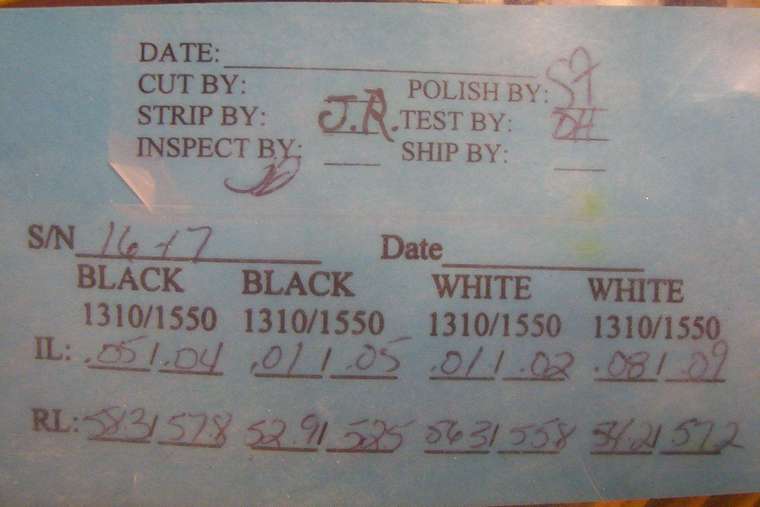 DATE:
CUT BY: POLISH BY:
STRIP BY: J.R. TEST BY: DH
INSPECT BY: SHIP BY:
S/N 16-17 Date
BLACK BLACK WHITE WHITE
1310/1550 1310/1550 1310/1550 1310/1550
IL: .05/.04 .01/.05 .01/.02 .08/.09
RL: 583/578 52.9/525 563/558 54.2/572